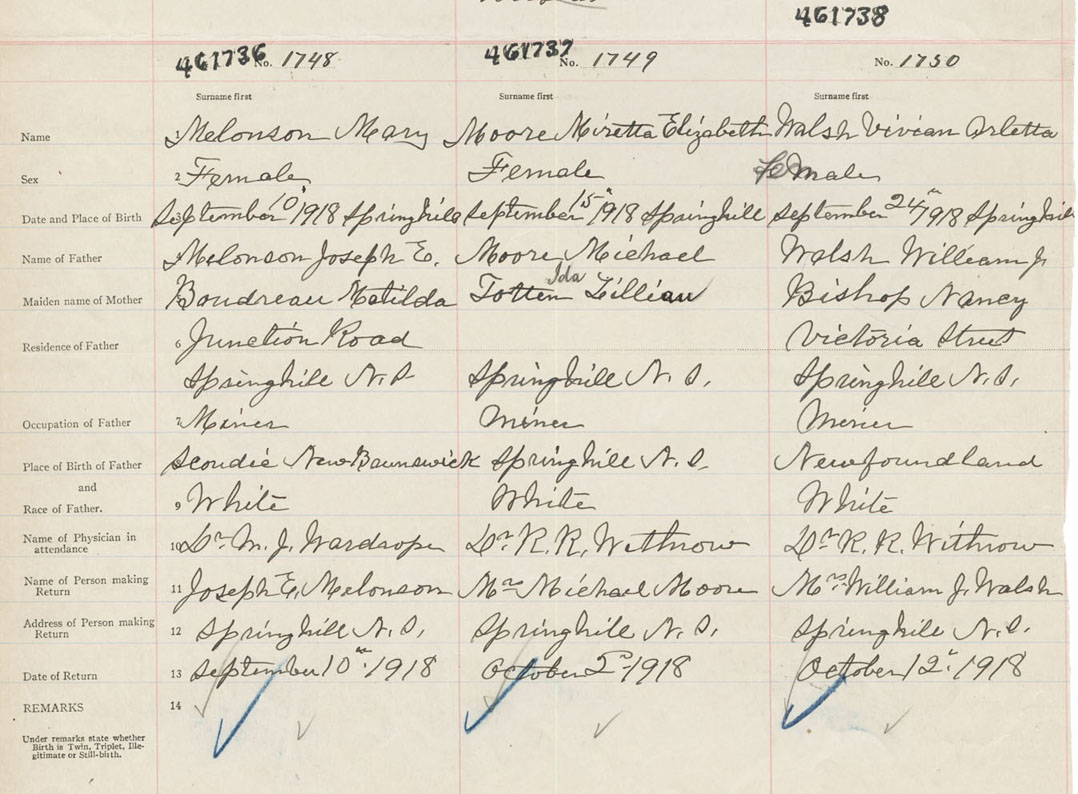 461738
461736 No. 1748 461737 No. 1749 No. 1750
Surname first Surname first Surname first
Name 1 Melonson Mary Moore Miretta Elizabeth Walsh Vivian Arletta
Sex 2 Female Female Female
Date and Place of Birth 3 September 10th 1918 Springhill September 15th 1918 Springhill September 24th 1918 Springhill
Name of Father Melonson Joseph E. Moore Michael Walsh William J.
Ida
Maiden name of Mother Boudreau Matilda Totten Lillian Bishop Nancy
Residence of Father 6 Junction Road Victoria Street
Springhill N.S. Springhill N.S. Springhill N.S.
Occupation of Father 7 Miner Miner Miner
Place of Birth of Father New Brunswick Springhill N.S. Newfoundland
and
Race of Father. 9 White White White
Name of Physician in
attendance 10 Dr M. J. Wardrope Dr R. R. Withrow Dr R. R. Withrow
Name of Person making
Return 11 Joseph E. Melonson Mrs Michael Moore Mrs William J. Walsh
Address of Person making
Return 12 Springhill N.S. Springhill N.S. Springhill N.S.
Date of Return 13 September 10th 1918 October 1918 October 12th 1918
REMARKS 14
Under remarks state whether
Birth is Twin, Triplet, Ille-
gitimate or Still-birth.